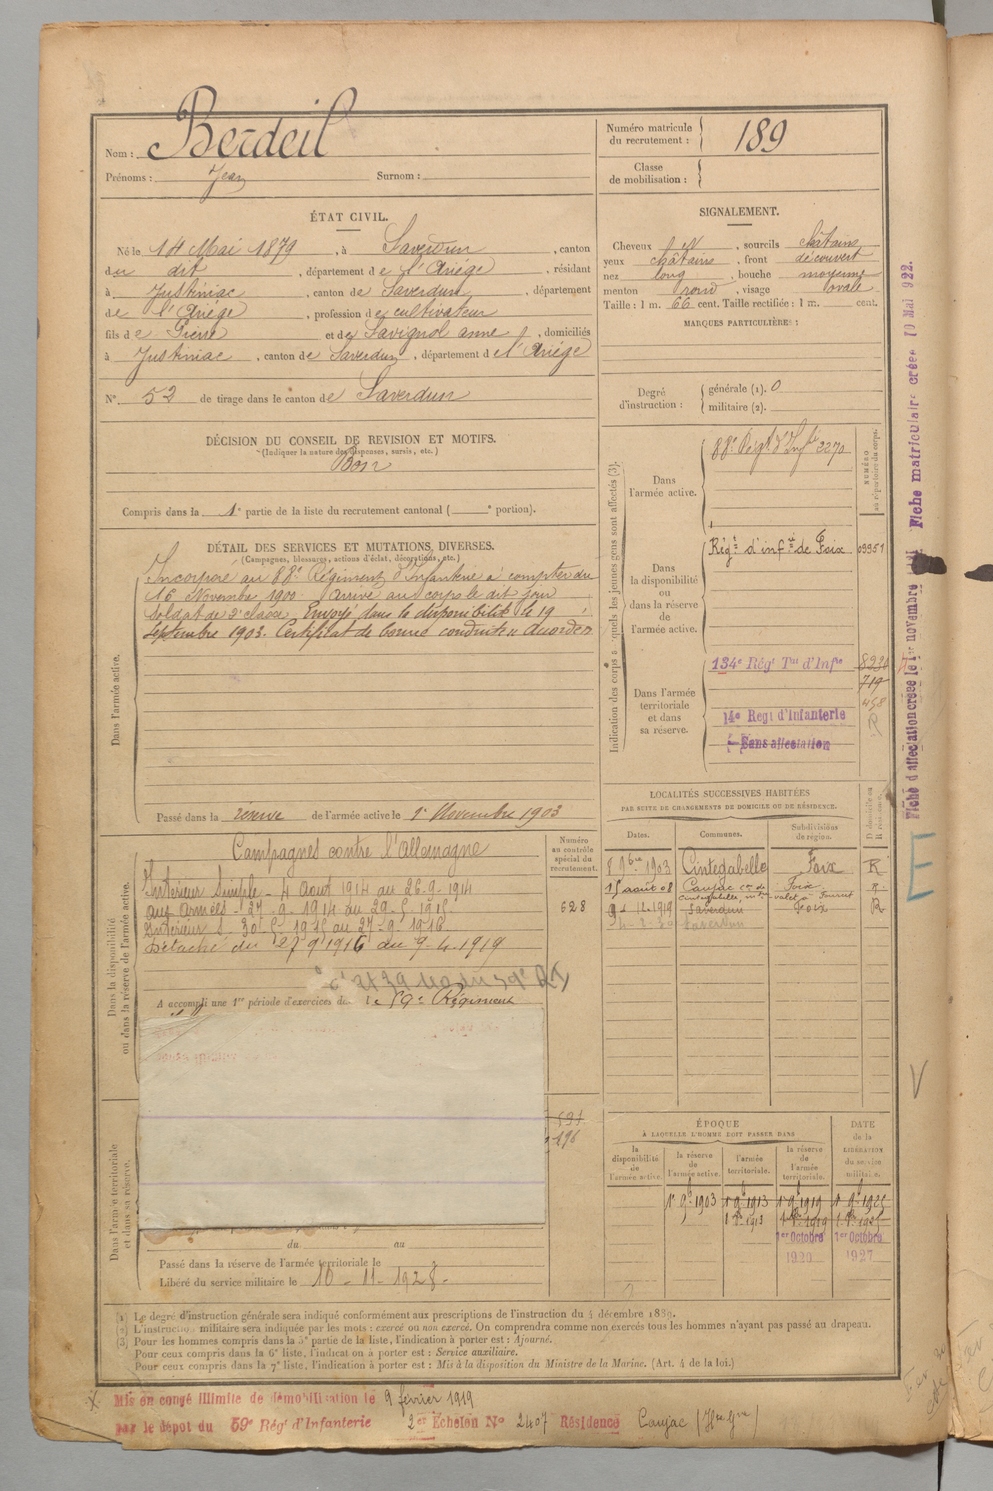 Nom : Berdeil
Prénoms : Jean Surnom :
Numéro matricule du recrutement : 189
Classe de mobilisation :
ÉTAT CIVIL.
Né le 14 Mai 1879, à Saverdun, canton
du dit, département de l'Ariège, résidant
à Justiniac, canton de Saverdun, département
de l'Ariège, profession de cultivateur
fils de Pierre et de Savignol anne, domiciliés
à Justiniac, canton de Saverdun, département de l'Ariége
N° 52 de tirage dans le canton de Saverdun
SIGNALEMENT.
Cheveux , sourcils châtains
yeux châtains, front découvert
nez long, bouche moyenne
menton rond, visage ovale
Taille : 1 m. 66 cent. Taille rectifiée : 1 m. cent.
MARQUES PARTICULIÈRES :
Degré d'instruction :
générale (1). 0
militaire (2).
DÉCISION DU CONSEIL DE REVISION ET MOTIFS.
(Indiquer la nature des dispenses, sursis, etc.)
Bon
Compris dans la 1e partie de la liste du recrutement cantonal ( e portion).
DÉTAIL DES SERVICES ET MUTATIONS DIVERSES.
(Campagnes, blessures, actions d'éclat, décorations, etc.)
Dans l'armée active.
Incorporé au 88e Régiment d'Infanterie à compter du
16 Novembre 1900. Arrivé au corps le dit jour
Soldat de 2e classe. Envoyé dans la disponibilité le 19
Septembre 1903. Certificat de bonne conduite accordé
Passé dans la réserve de l'armée active le 1er Novembre 1903
Indication des corps auxquels les jeunes gens sont affectés (3).
NUMÉRO au répertoire du corps.
Dans l'armée active.
88e Régt d'Infie 2270
Dans la disponibilité ou dans la réserve de l'armée active.
Régt d'infie de Foix 09951
Dans l'armée territoriale et dans sa réserve.
134e Régt Tal d'Infie 8230
719
458
14e Regt d'Infanterie
Sans affectation
Fiche d'affectation créée le 1er novembre
Fiche matriculaire créée 10 Mai 922.
Dans la disponibilité ou dans la réserve de l'armée active.
Campagnes contre l'Allemagne
Intérieur Simple - 4 Aout 1914 au 26-9-1914
aux Armées - 27-9-1914 au 29-5-1915
Intérieur S. 30-5-1915 au 27-9-1916
Détaché du 27 9 1916 au 9-4-1919
A accompli une 1re période d'exercices dans le 59e Régiment
Numéro au contrôle spécial du recrutement.
628
531
196
LOCALITÉS SUCCESSIVES HABITÉES
PAR SUITE DE CHANGEMENTS DE DOMICILE OU DE RÉSIDENCE.
Dates. Communes. Subdivisions de région. D domicile ou R résidence.
8 9bre 1903 Cintegabelle Foix R
15 août 08 Caujac Foix R
1919 Saverdun Foix R
Saverdun
E
V
Dans l'armée territoriale et dans sa réserve.
du au
Passé dans la réserve de l'armée territoriale le
Libéré du service militaire le 10-11-1928.
ÉPOQUE
À LAQUELLE L'HOMME DOIT PASSER DANS
DATE de la LIBÉRATION du service militaire.
la disponibilité de l'armée active. la réserve de l'armée active. l'armée territoriale. la réserve de l'armée territoriale.
1er 9b 1903 1er 9b 1913 1er 9b 1919 1er 9b 1925
1er Octobre 1er Octobre
1920 1927
(1) Le degré d'instruction générale sera indiqué conformément aux prescriptions de l'instruction du 4 décembre 1889.
(2) L'instruction militaire sera indiquée par les mots : exercé ou non exercé. On comprendra comme non exercés tous les hommes n'ayant pas passé au drapeau.
(3) Pour les hommes compris dans la 5e partie de la liste, l'indication à porter est : Ajourné.
Pour ceux compris dans la 6e liste, l'indication à porter est : Service auxiliaire.
Pour ceux compris dans la 7e liste, l'indication à porter est : Mis à la disposition du Ministre de la Marine. (Art. 4 de la loi.)
Mis en congé illimité de démobilisation le 9 février 1919
par le dépôt du 59e Régt d'Infanterie 2er Echelon N° 2407 Résidence Caujac (Hte Gne)